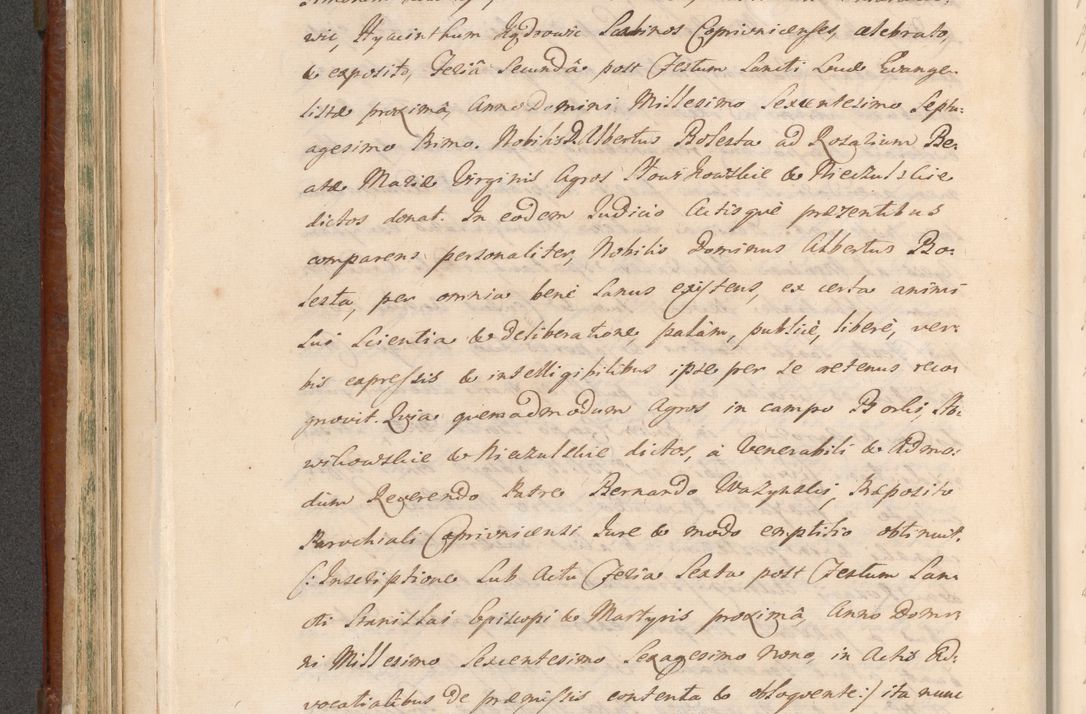 wic, Hyacinthum Kędrowic Scabinos Coprivnicenses, celebrato,
& exposito, Feriâ Secundâ post Festum Sancti Lucæ Evange-
listæ proximâ, Anno Domini Millesimo Sexcentesimo Septu-
agesimo Primo. Nobilis D. Albertus Bolesta ad Rosarium Be-
atæ Mariæ Virginis Agros & Nieczulskie
dictos donat. In eodem Judicio Actisquè præsentibus
comparens personaliter, Nobilis Dominus Albertus Bo-
lesta, per omnia benè sanus existens, ex certa animi
sui scientia & deliberatione, palàm, publicè, liberè, ver-
bis expressis & intelligibilibus ipse per se oretenus reco-
gnovit. Quia quemadmodum Agros in campo Borki, Sta-
wikowskie & Nieczulskie dictos, à Venerabili & Admo-
dum Reverendo Patre Bernardo Ważynski, Præposito
Parochiali Coprivnicensi Jure & modo emptitio obtinuit.
/: Inscriptione sub Actu Feria Sexta post Festum San-
cti Stanislai Episcopi & Martyris proximâ, Anno Domi-
ni Millesimo Sexcentesimo Sexagesimo Nono, in Actis Ad-
vocatialibus de præmissis contenta & obloquente :/ ita nunc